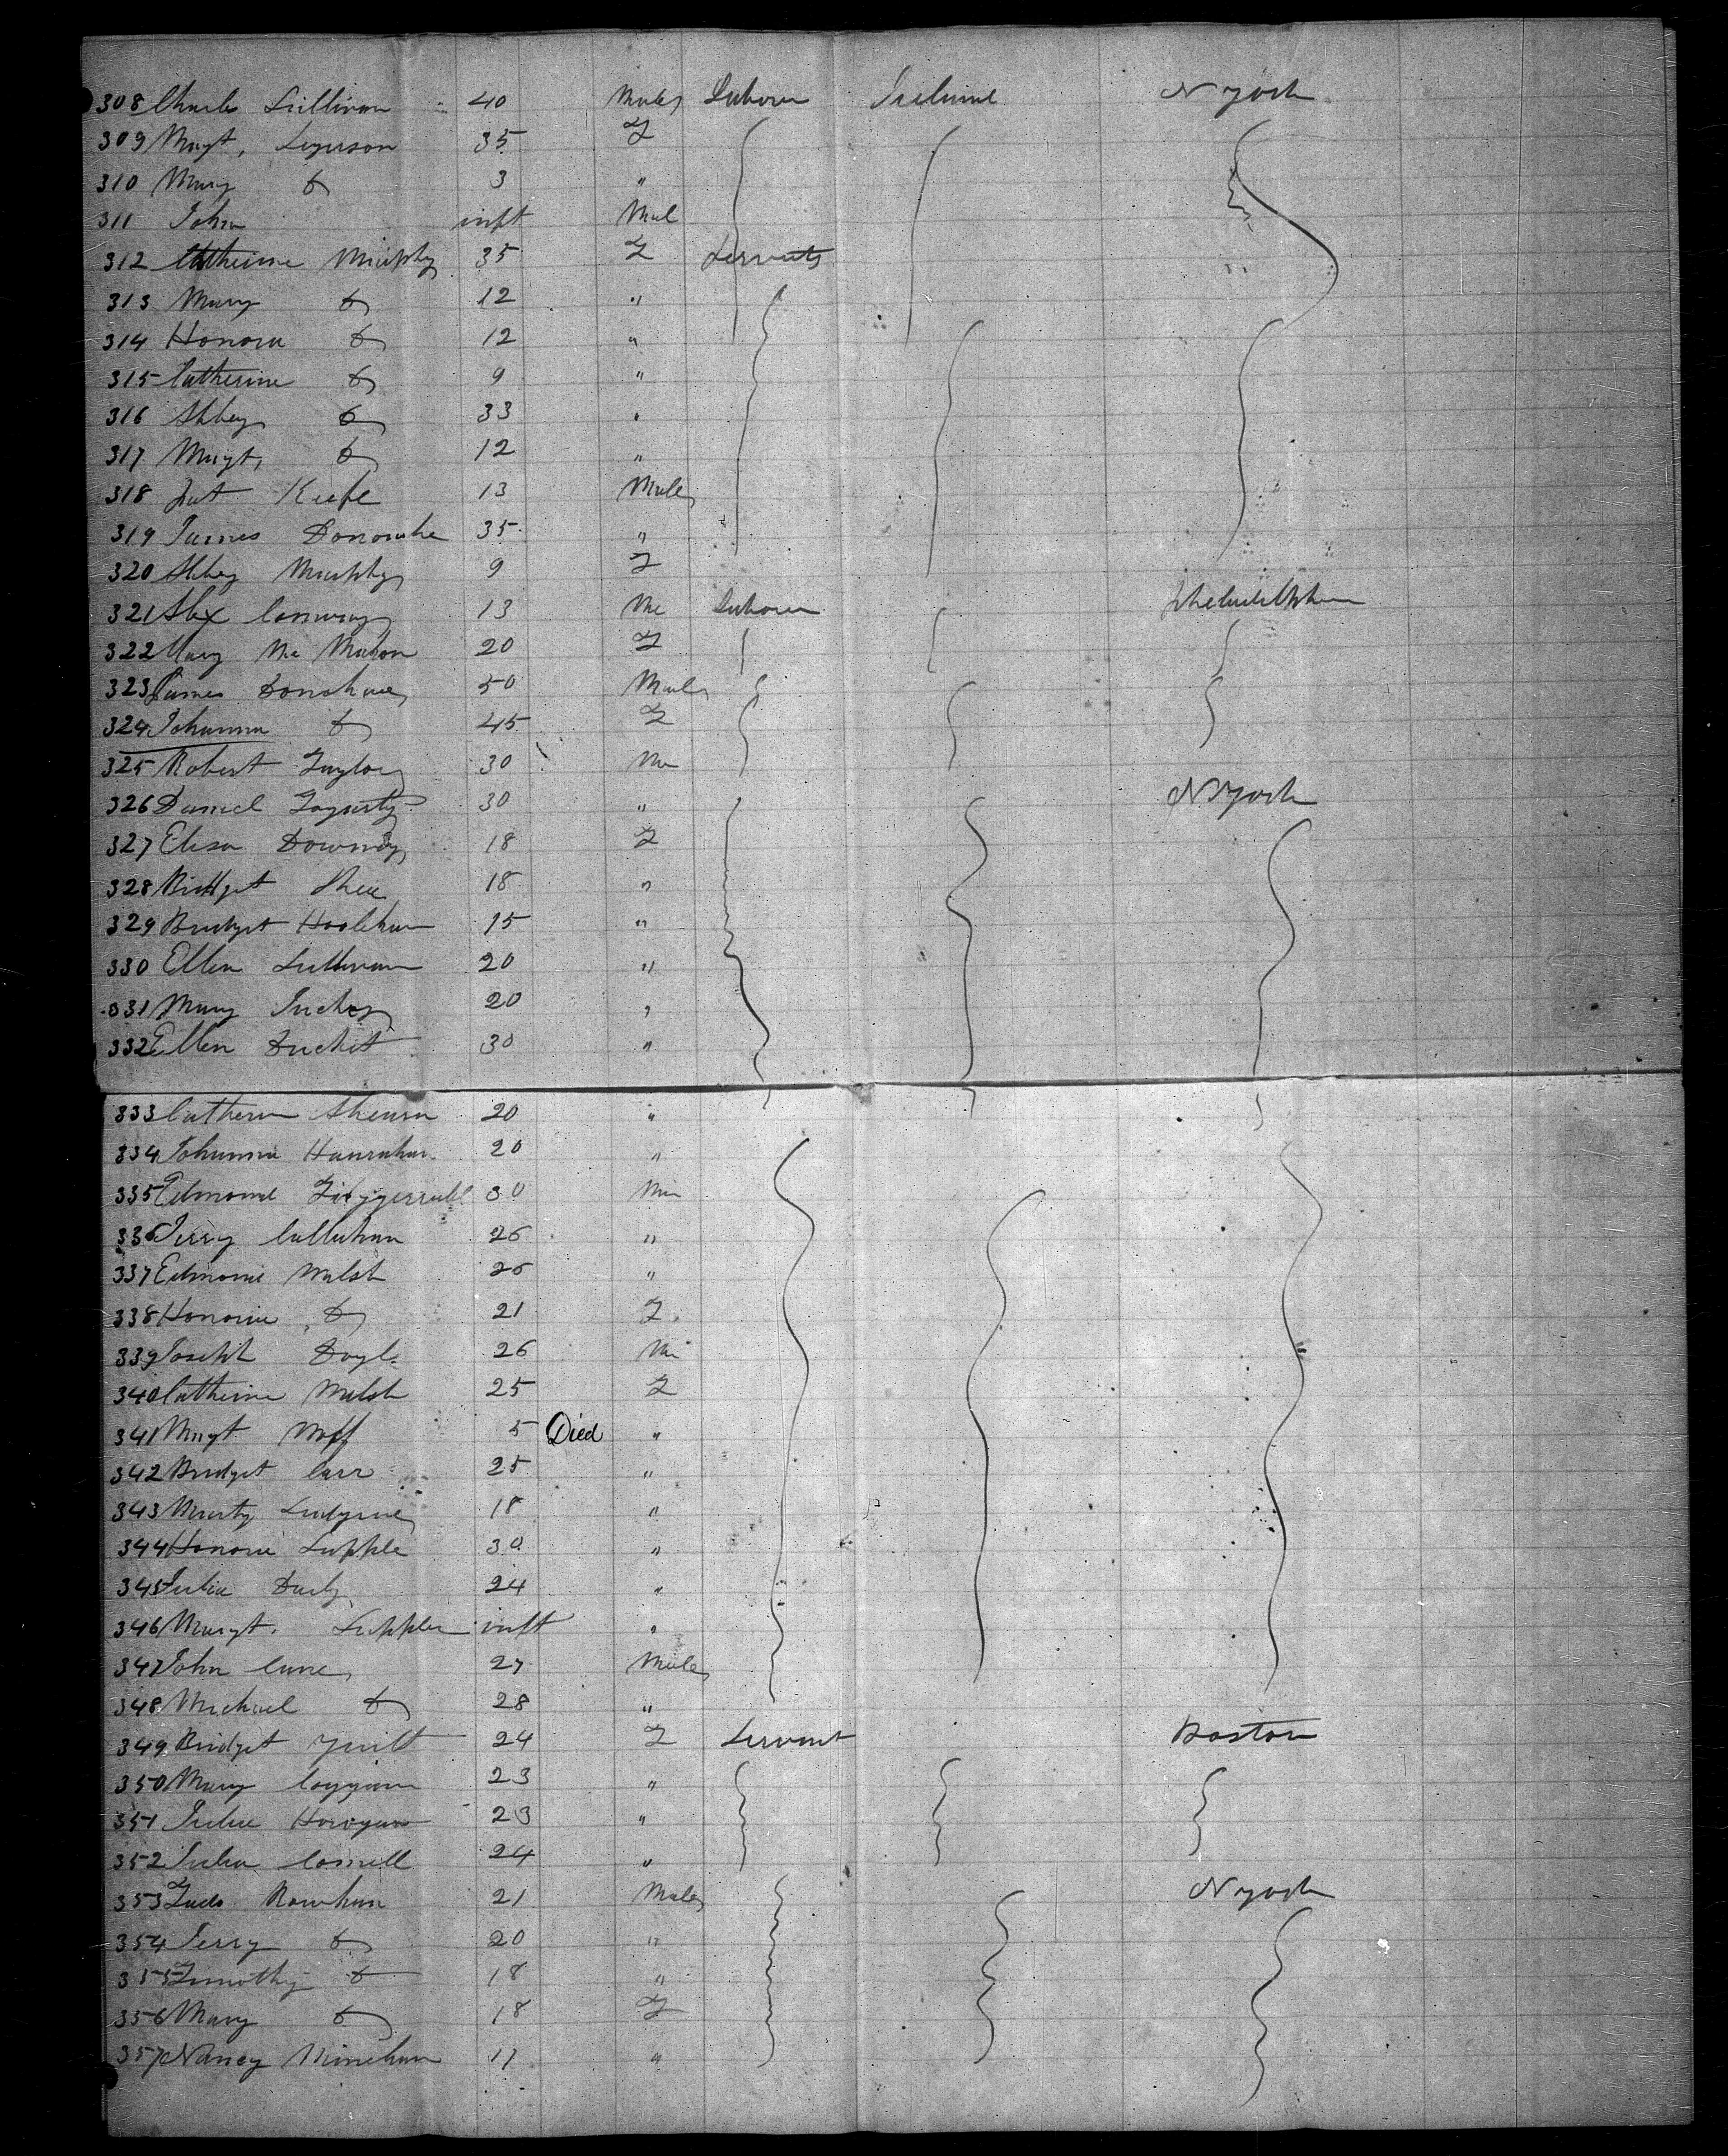 308 Charles Sullivan 40 Males Labourer Ireland N York
309 Magt, Leyurson 35 F
310 Mary Do 3 "
311 John inft Mal
312 Catherine Murphy 35 F Servants
313 Mary Do 12 "
314 Honora Do 12 "
315 Catherine Do 9 "
316 Abbey Do 33 "
317 Magt, Do 12 "
318 Pat Keefe 13 Males
319 James Donowhe 35 "
320 Abbey Murphy 9 F
321 Alex Conway 13 Me Labourer
322 Mary Mc Mahon 20 F
323 James Donohue 50 Males
324 Johanna Do 45 F
325 Robert Taylor 30 Me
326 Daniel Fogarty 30 " N York
327 Elisa Downey 18 F
328 Bridget Shea 18 "
329 Bridget Hoolehan 15 "
330 Ellen Sullivan 20 "
331 Mary 20 "
332 Ellen Ducket 30 "
333 Catherin Ahearn 20 "
334 Johanna Hanrahan 20 "
335 Edmond Fitzgerrald 30 Me
336 Jerry Callahan 26 "
337 Edmond Walsh 26 "
338 Honorie Do 21 F
339 Joseph Doyle 26 Me
340 Catherine Walsh 25 F
341 Magt 5 Died "
342 Bridget Carr 25 "
343 18 "
344 Honora Supple 30 "
345 Julia Daly 24 "
346 Margt. Supple inft "
347 John Lane 27 Males
348 Michael Do 28 "
349 Bridget 24 F Servant Boston
350 Mary Coggan 23 "
351 Julia Horogan 23 "
352 Julia Connell 24 "
353 Rowhan 21 Males N York
354 Jerry Do 20 "
355 Timothy Do 18 "
356 Mary Do 18 F
357 Nancy Minehan 17 "